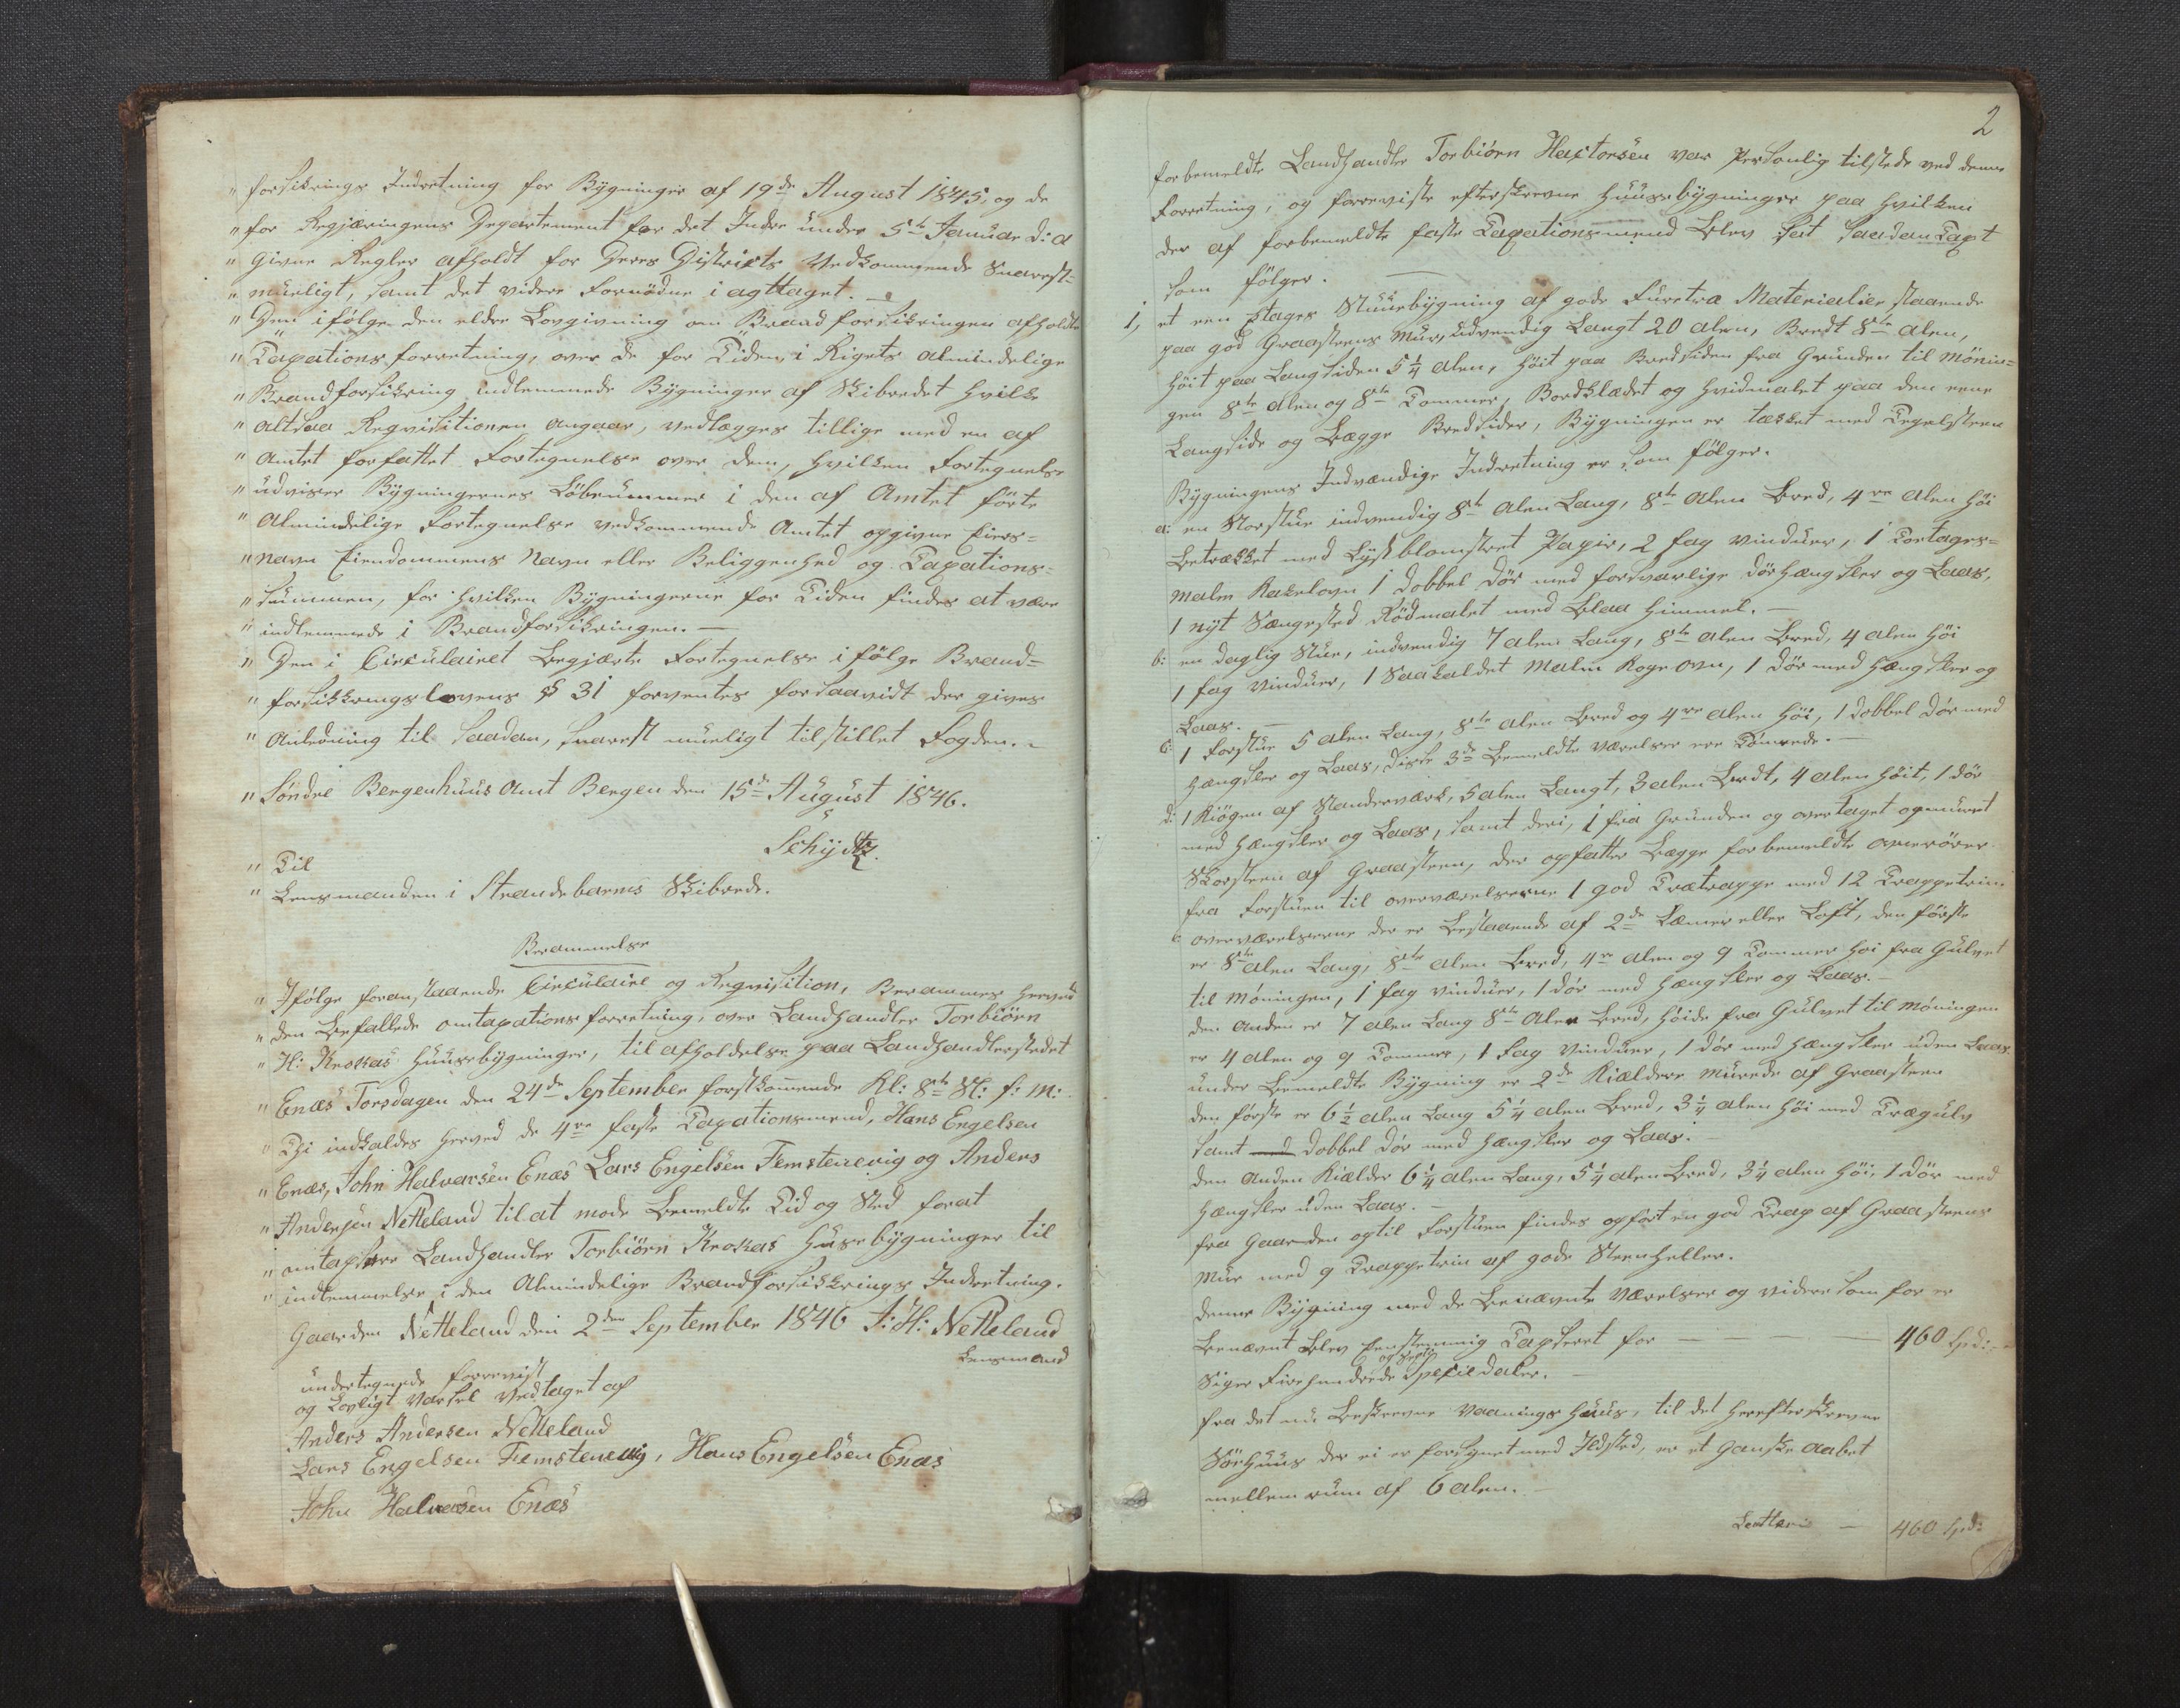 " forsikrings Indretning for Bÿgninger af 19de August 1845, og de
" for Regjæringens Departement for det Indre ünder 5te Januar d: a
" givne Regler afholdt for Deres Districts Vedkommende Snarest=
" müeligt, samt det videre fornødne iagttaget. —
" Den ifølge den eldre Lovgivning om Brandforsikringen afholdte
" Taxations forretning, over de for Tiden i Rigets almindelige
" Brandforsikring indlemmede Bÿgninger af Skibredet hvilke
" altsaa Reqvisitionen angaar, vedlægges tillige med en af
" Amtet forfattet Fortegnelse over dem, hvilken Fortegnelse
" üdviser Bÿgningernes Løbenummer i den af Amtet førte
" Almindelige Fortegnelse vedkommende Amtet opgivne Eiers=
" navn Eiendommens Navn eller Beliggenhed og Taxations=
" sümmen, for hvilken Bÿgningerne for Tiden findes at være
" indlemmede i Brandforsikringen. —
" Den i Circulairet begjærte Fortegnelse ifølge Brand=
" forsikkringslovens § 31 forventes forsaavidt der gives
" Anledning til saadan, snarest müeligt tilstillet Fogden. –
" Søndre Bergenhüüs Amt Bergen den 15de August 1846.
Schÿdtz.
" Til
" Lensmanden i Strandebarms Skibrede.
Berammelse
" Ifølge foranstaaende Circulaire og Reqvisition, Berammes herved
" den befallede omtaxationsforretning, over Landhandler Torbiörn
" H: Krokas Hüüsebÿgninger, til afholdelse paa Landhandlerstedet
" Enæs Torsdagen den 24de September førstkommende Kl: 8te Sl: f: m:
" Thi indkaldes herved de 4re faste Taxationsmænd, Hans Engelsen
" Enæs, John Halvorsen Enæs Lars Engelsen Femstenevig og Anders
" Andersen Netteland til at møde bemeldte Tid og Sted for at
" omtaxere Landhandler Torbiörn Krokas Hüsebÿgninger til
" indlemmelse i den Almindelige Brandforsikkrings Indretning.
Gaarden Netteland den 2den September 1846 A: H: Netteland
Lensmand
ündertegnede forevist
og Lovligt Varsel Vedtaget af
Anders Andersen Netteland
Lars Engelsen Femstenevig, Hans Engelsen Enæs
John Halvorsen Enæs
2
forbemeldte Landhandler Torbiörn Hactorsen var Personlig tilstede ved denne
forretning, og foreviste efterskrevne Hüüsebÿgninger paa hvilken
der af forbemeldte faste Taxationsmænd blev sat saadan Taxt
som følger. —
1, et een Etages Stüuebÿgning af gode Furetræ Materialier, staaende
paa god Graasteens Mür, üdvendig Langt 20 alen, Bredt 8te alen,
høit paa Langsiden 5 1/4 alen, høit paa Bredsiden fra Gründen til Mønin=
gen 8te alen og 8te Tommer, Bordklædet og Hvidmalet paa den eene
Langside og begge Bredsider, Bÿgningen er tækket med Tegelsteen
Bÿgningens Indvændige Indretning er som følger.
a: en Storstüe indvendig 8te alen Lang, 8te alen bred, 4re alen høi
betrækket med Lÿsblomstret Papir, 2 fag vindüer, 1 Toetages=
malm Kakelovn 1 dobbel dör med forsvarlige dörhængsler og Laas,
1 nÿt Sængested Rödmalet med blaa Himmel. —
b: en daglig Stüe, indvendig 7 alen Lang, 8te alen bred, 4 alen höi
1 fag vindüer, 1 Saakaldet Malm Koge ovn, 1 dör med hængsler og
Laas. —
c: 1 forstüe 5 alen Lang, 8te alen bred og 4re alen höi, 1 dobbel dör med
hængsler og Laas, disse 3de bemeldte værelser ere Tömrede. —
d: 1 Kiögen af Standerværk, 5 alen Langt, 3 alen bredt, 4 alen höit, 1 dör
med hængsler og Laas, samt deri, 1 fra Gründen og overtaget opmüret
Skorsteen af Graasteen, der opfatter begge forbemeldte ovnerörer
fra forstüen til overværelserne 1 god Trætrappe med 12 Trappetrin.
e overværelserne der er bestaaende af 2de Læmer eller Loft, den første
er 8te alen Lang, 8te alen bred, 4re alen og 9 Tommer høi fra Gülvet
til Møningen, 1 fag vindüer, 1 dör med hængsler og Laas. —
den anden er 7 alen Lang 8te alen bred, höide fra Gülvet til Møningen
er 4 alen og 9 Tommer, 1 fag vindüer, 1 dör med hængsler üden Laas.
ünder bemeldte Bÿgning er 2de Kiældere mürede af Graasteen
den første er 6 1/2 alen Lang 5 1/4 alen bred, 3 1/4 alen höi med Trægulv
samt dobbel dör med hængsler og Laas. —
den anden Kiælder 6 1/4 alen Lang, 5 1/4 alen bred, 3 1/4 alen höi, 1 dör med
hængsler üden Laas. —
fra Gaarden optil forstüen findes opført en god Trap af Graasteens
Mür med 9 Trappetrin af gode Steenheller.
denne Bÿgning med de benævnte Værelser og videre som før er
benævnt blev Eenstemmig Taxseret for — — — — 460 Spd:
og sexti
Siger Firehundrede Speciedaler. —
fra det nu beskrevne Vaaningshüüs, til det herefterskrevne
Sörhüüs der ei er forsÿnet med Ildsted, er et ganske aabet
mellemrüm af 6 alen. —
Latteris — 460 Spd: